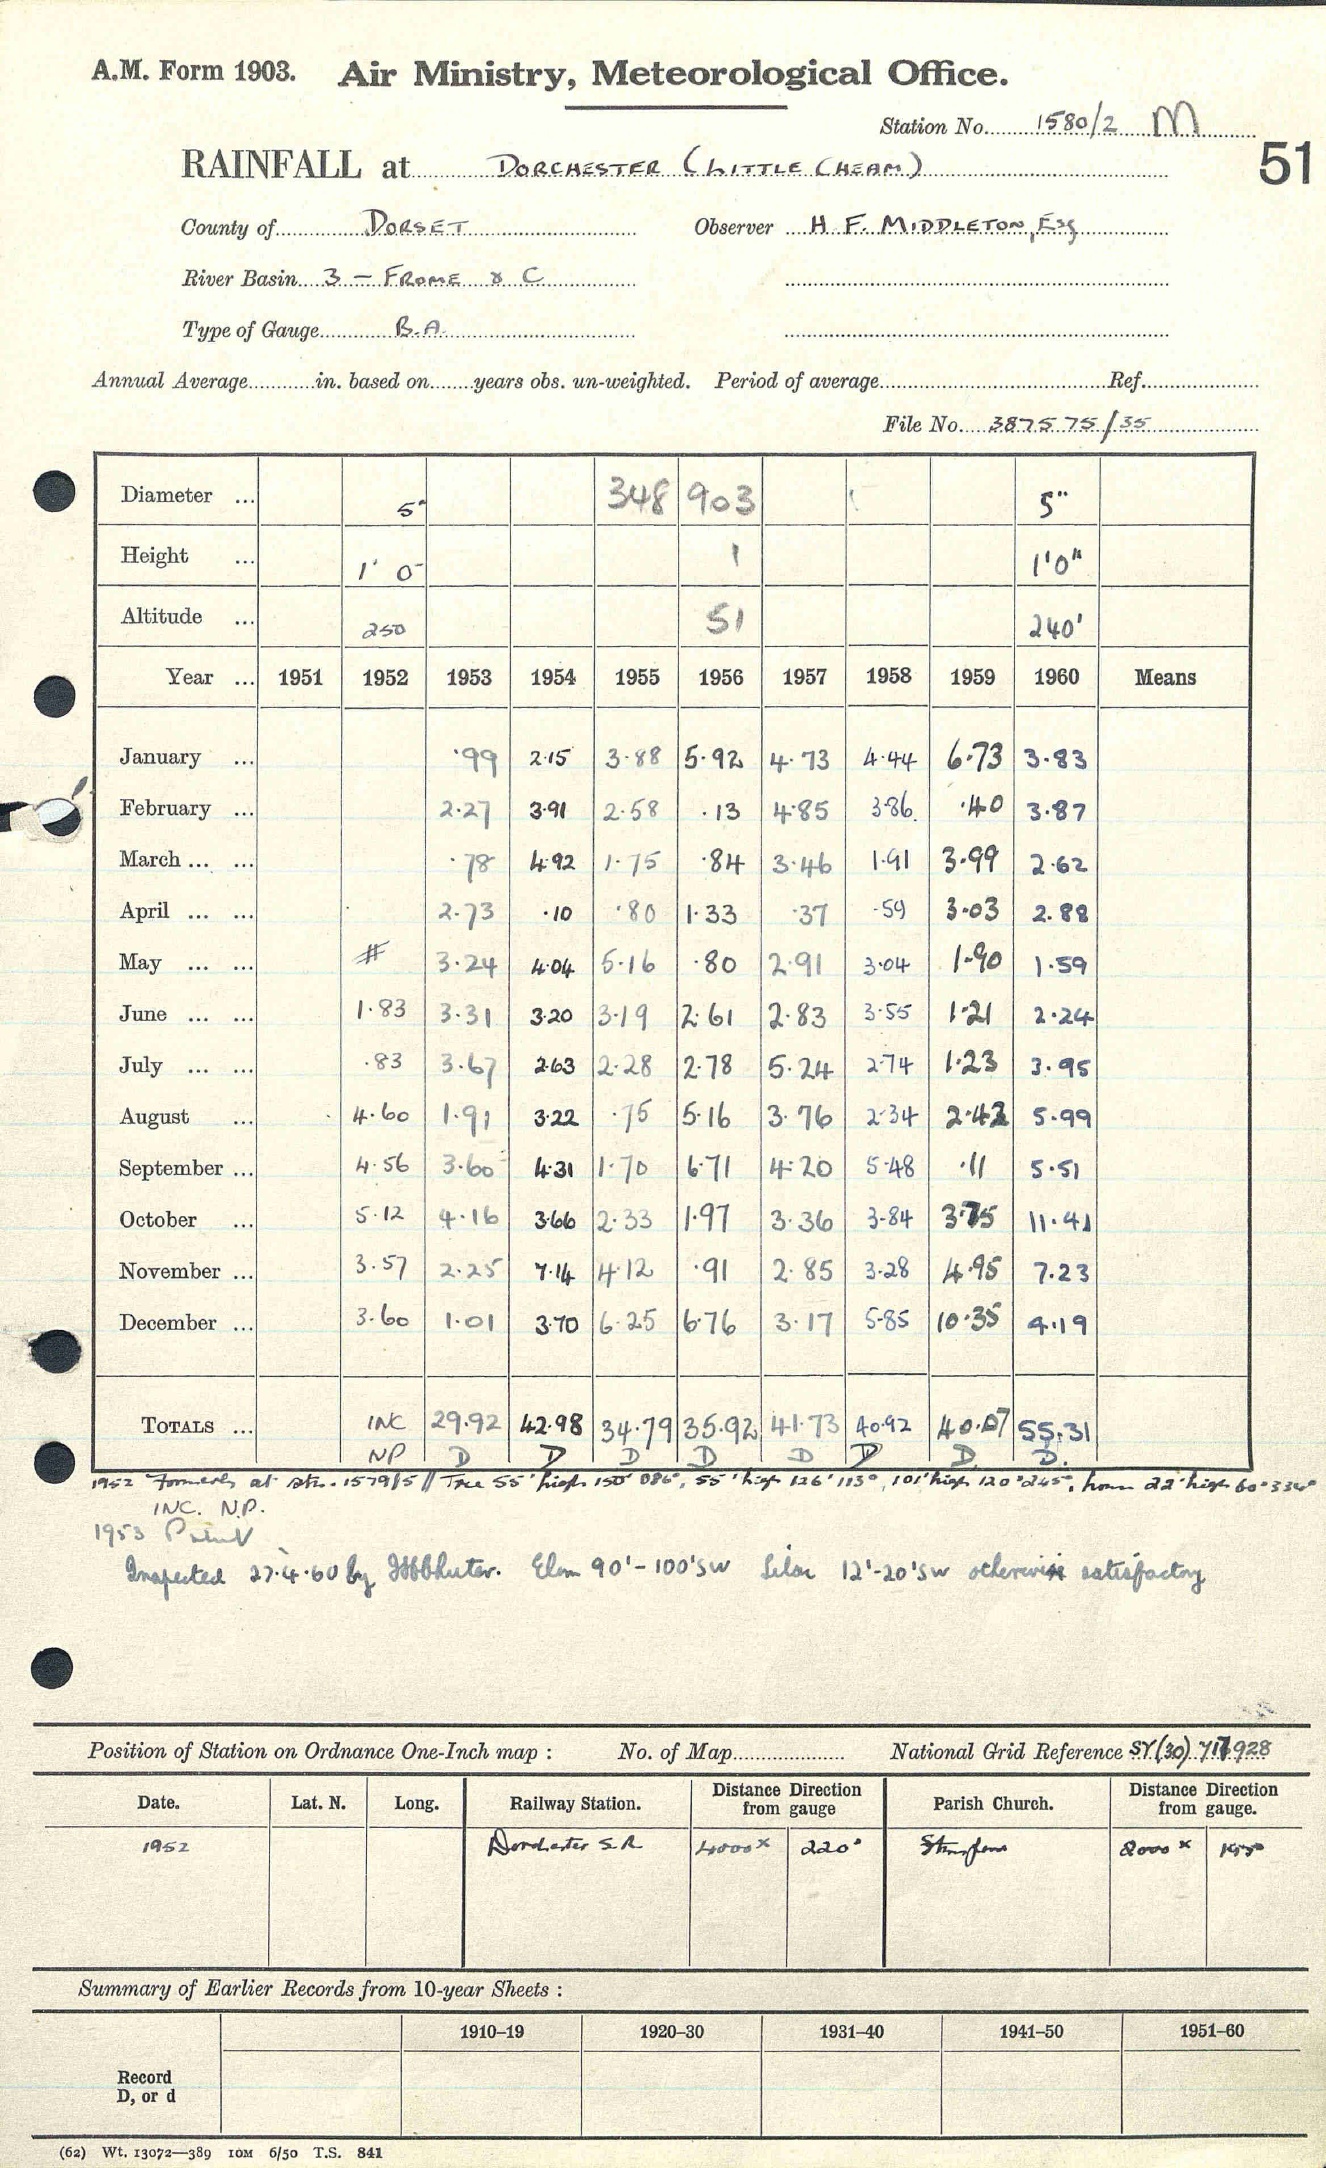 A.M. Form 1903. Air Ministry, Meteorological Office.
Station No. 1580/2 M
51
RAINFALL at DORCHESTER (LITTLE CHEAM)
County of DORSET Observer H F. MIDDLETON, Esq
River Basin 3 — FROME & C
Type of Gauge B.A.
Annual Average in. based on years obs. un-weighted. Period of average Ref.
File No. 387575/35
Diameter ... 5" 348 903 5"
Height ... 1' 0" 1 1'0"
Altitude ... 250 51 240'
Year ... 1951 1952 1953 1954 1955 1956 1957 1958 1959 1960 Means
January ... ·99 2·15 3·88 5·92 4·73 4·44 6·73 3·83
February ... 2·27 3·91 2·58 ·13 4·85 3·86 ·40 3·87
March ... ... ·78 4·92 1·75 ·84 3·46 1·91 3·99 2·62
April ... ... 2·73 ·10 ·80 1·33 ·37 ·59 3·03 2·88
May ... ... # 3·24 4·04 5·16 ·80 2·91 3·04 1·90 1·59
June ... ... 1·83 3·31 3·20 3·19 2·61 2·83 3·55 1·21 2·24
July ... ... ·83 3·67 2·63 2·28 2·78 5·24 2·74 1·23 3·95
August ... 4·60 1·91 3·22 ·75 5·16 3·76 2·34 2·42 5·99
September ... 4·56 3·60 4·31 1·70 6·71 4·20 5·48 ·11 5·51
October ... 5·12 4·16 3·66 2·33 1·97 3·36 3·84 3·75 11·41
November ... 3·57 2·25 7·14 4·12 ·91 2·85 3·28 4·95 7·23
December ... 3·60 1·01 3·70 6·25 6·76 3·17 5·85 10·35 4·19
TOTALS ... INC 29·92 42·98 34·79 35·92 41·73 40·92 40·07 55·31
NP D D D D D D D. D.
1952 Formerly at Stn. 1579/5 // Tree 55' high 150' 086°, 55' high 126' 113°, 101' high 120' 245°, house 22' high 60' 334°
INC. N.P.
1953
Inspected 27·4·60 by Elm 90'-100' SW Lilac 12'-20' SW otherwise satisfactory
Position of Station on Ordnance One-Inch map : No. of Map National Grid Reference SY(30) 928
Date. Lat. N. Long. Railway Station. Distance from gauge Direction Parish Church. Distance from gauge. Direction
1952 Dorchester S.R 4000x 220° Stinsford 2000x
Summary of Earlier Records from 10-year Sheets :
1910–19 1920–30 1931–40 1941–50 1951–60
Record
D, or d
(62) Wt. 13072—389 10M 6/50 T.S. 841